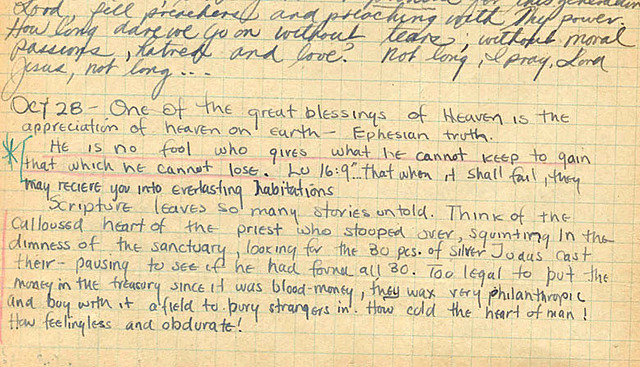 Lord, fill preachers and preaching with Thy power.
How long dare we go on without tears, without moral
passions, hatred and love? Not long, I pray, Lord
Jesus, not long ...
Oct 28 - One of the great blessings of Heaven is the
appreciation of heaven on earth - Ephesian truth.
He is no fool who gives what he cannot keep to gain
that which he cannot lose. Lu 16:9 "...that when it shall fail, they
may reciere you into everlasting habitations
Scripture leaves so many stories untold. Think of the
calloused heart of the priest who stooped over, squinting in the
dimness of the sanctuary, looking for the 30 pcs. of silver Judas cast
their - pausing to see if he had found all 30. Too legal to put the
money in the treasury since it was blood-money, they wax very philanthropic
and buy with it a field to bury strangers in. How cold the heart of man!
How feelingless and obdurate!